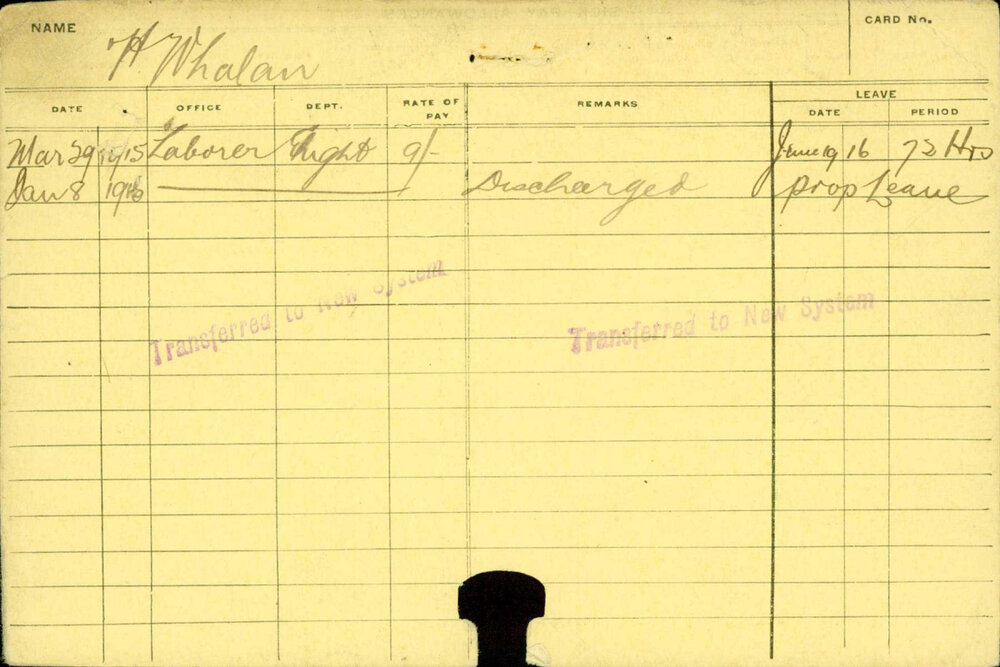 NAME H. Whalan CARD No.
LEAVE
DATE OFFICE DEPT. RATE OF PAY REMARKS DATE PERIOD
Mar 29 1915 Laborer Night 9/- June 19 16 72 Hrs
Jan 8 1916 Discharged prop Leave
Transferred to New System
Transferred to New System